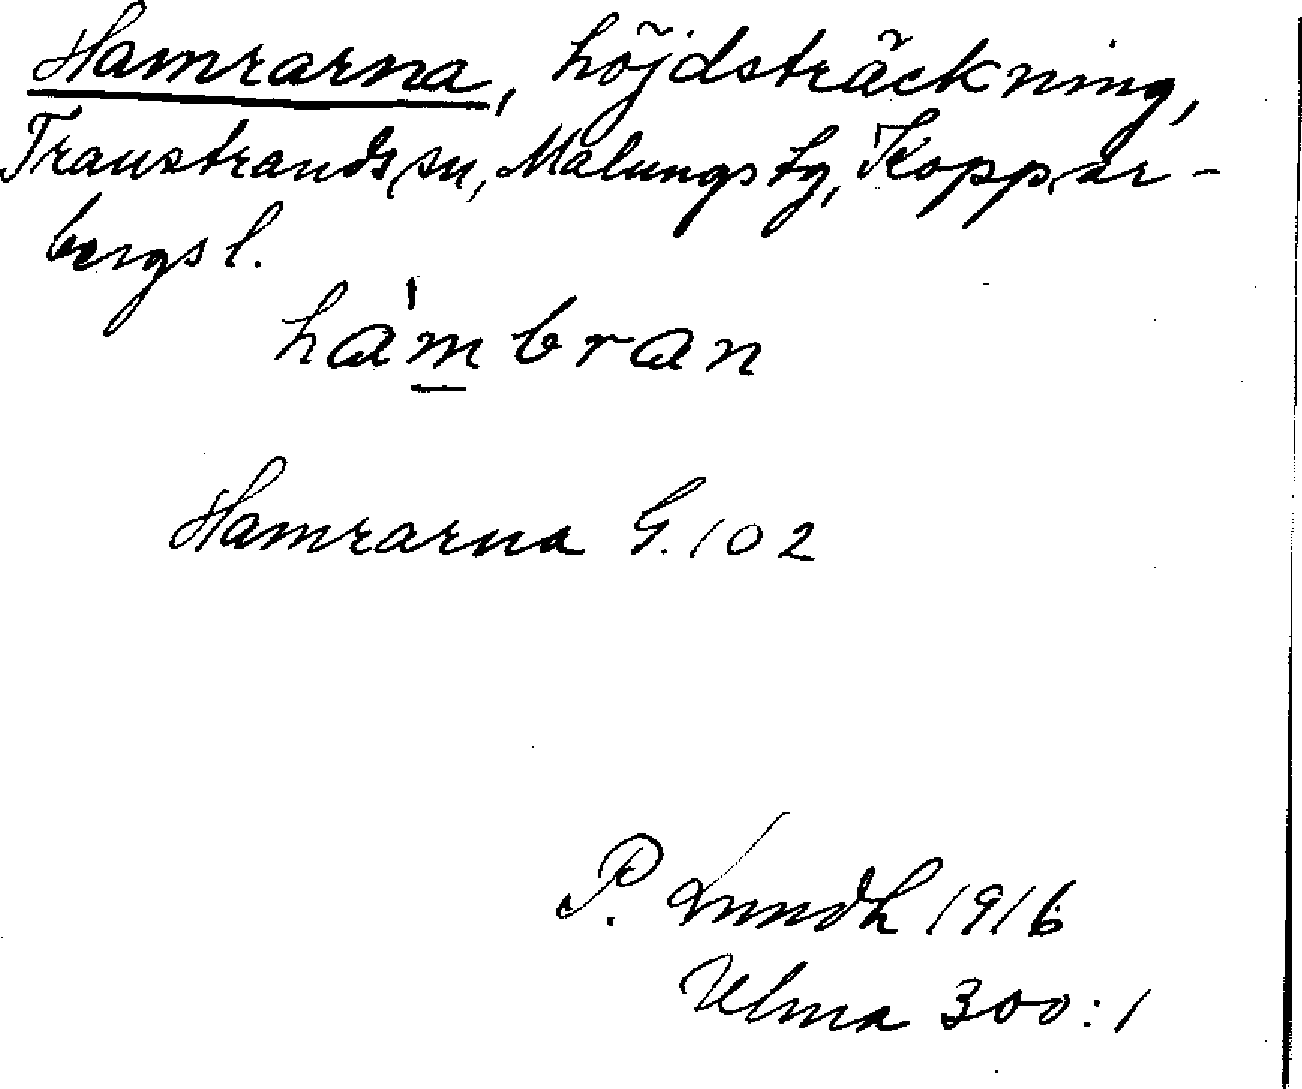 Hamrarna, höjdsträckning,
Transtrands sn, Malungs tg, Koppar-
bergs l.
hàm̲bran
Hamrarna G. 102
P. Lundh 1916
Ulma 300:1